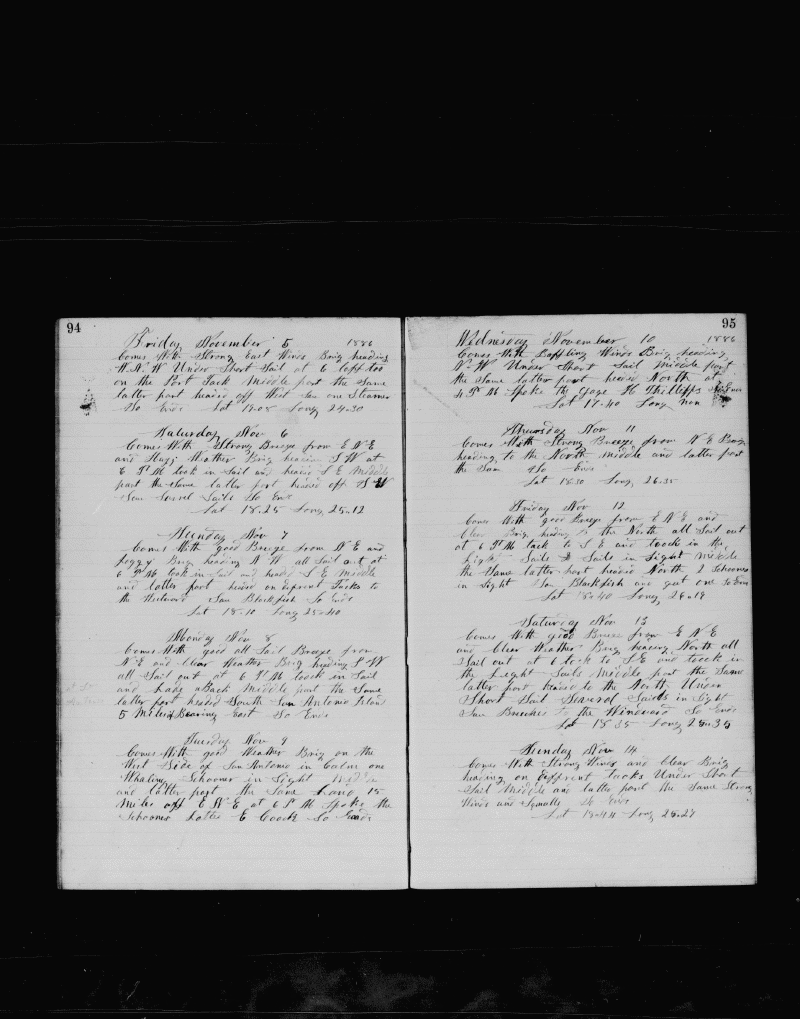 94
Friday November 5 1886
Comes With Strong East Winds Brig heading
N.N.W Under Short Sail at 6 luff too
on the Port Tack Middle part the Same
latter part headed off West Saw one Steamer
So Ends Lat 18-08 Long 24-30
Saturday Nov 6
Comes With Strong Breeze from E N E
and Hazy Weather Brig heading S W at
6 P M took in Sail and headed S E Middle
part the Same latter part headed off S W
Saw Several Sails So Ends
Lat 18-25 Long 25-12
Sunday Nov 7
Comes With good Breeze from N E and
foggy Brig heading N W all Sail out at
6 P M took in Sail and headed S E Middle
and latter part headed on diferent Tacks to
the Windward Saw Blackfish So Ends
Lat 18-10 Long 25-40
Monday Nov 8
Comes With good all Sail Breeze from
N E and Clear Weather Brig heading S W
all Sail out at 6 P M took in Sail
and haled aBack Middle part the Same
latter part headed South San Antonio Island
5 Miles Bearing East So Ends
Tuesday Nov 9
Comes With good Weather Brig on the
West Side of San Antonio in Calm one
Whaling Schooner in Sight Middle
and latter part the Same Land 15
Miles off E N E at 6 P M Spoke the
Schooner Lottie E Coock So Ends
95
Wednesday November 10 1886
Comes With Baffling Winds Brig heading
N. W Under Short Sail Middle part
the Same latter part headed North at
4 P M Spoke the Gage H Phillips So Ends
Lat 17-40 Long non
Thursday Nov 11
Comes With Strong Breeze from N E Brig
heading to the North Middle and latter part
the Same So Ends
Lat 18-30 Long 26-35
Friday Nov 12
Comes With good Breeze from E N E and
Clear Brig heading to the North all Sail out
at 6 P M tack to S E and toock in the
Light Sails Sails in Sight Middle
the Same latter part headed North 2 Schooners
in Sight Saw Blackfish and got one So Ends
Lat 18-40 Long 26-18
Saturday Nov 13
Comes With good Breeze from E N E
and Clear Weather Brig heading North all
Sail out at 6 tock to S E and toock in
the Light Sails Middle part the Same
latter part headed to the North Under
Short Sail Several Sails in Sight
Saw Breches to the Windward So Ends
Lat 18-35 Long 25-35
Sunday Nov 14
Comes With Strong Winds and Clear Brig
heading on diffrent tacks Under Short
Sail Middle and latter part the Same Strong
Winds and Squalls So Ends
Lat 18-44 Long 25-27